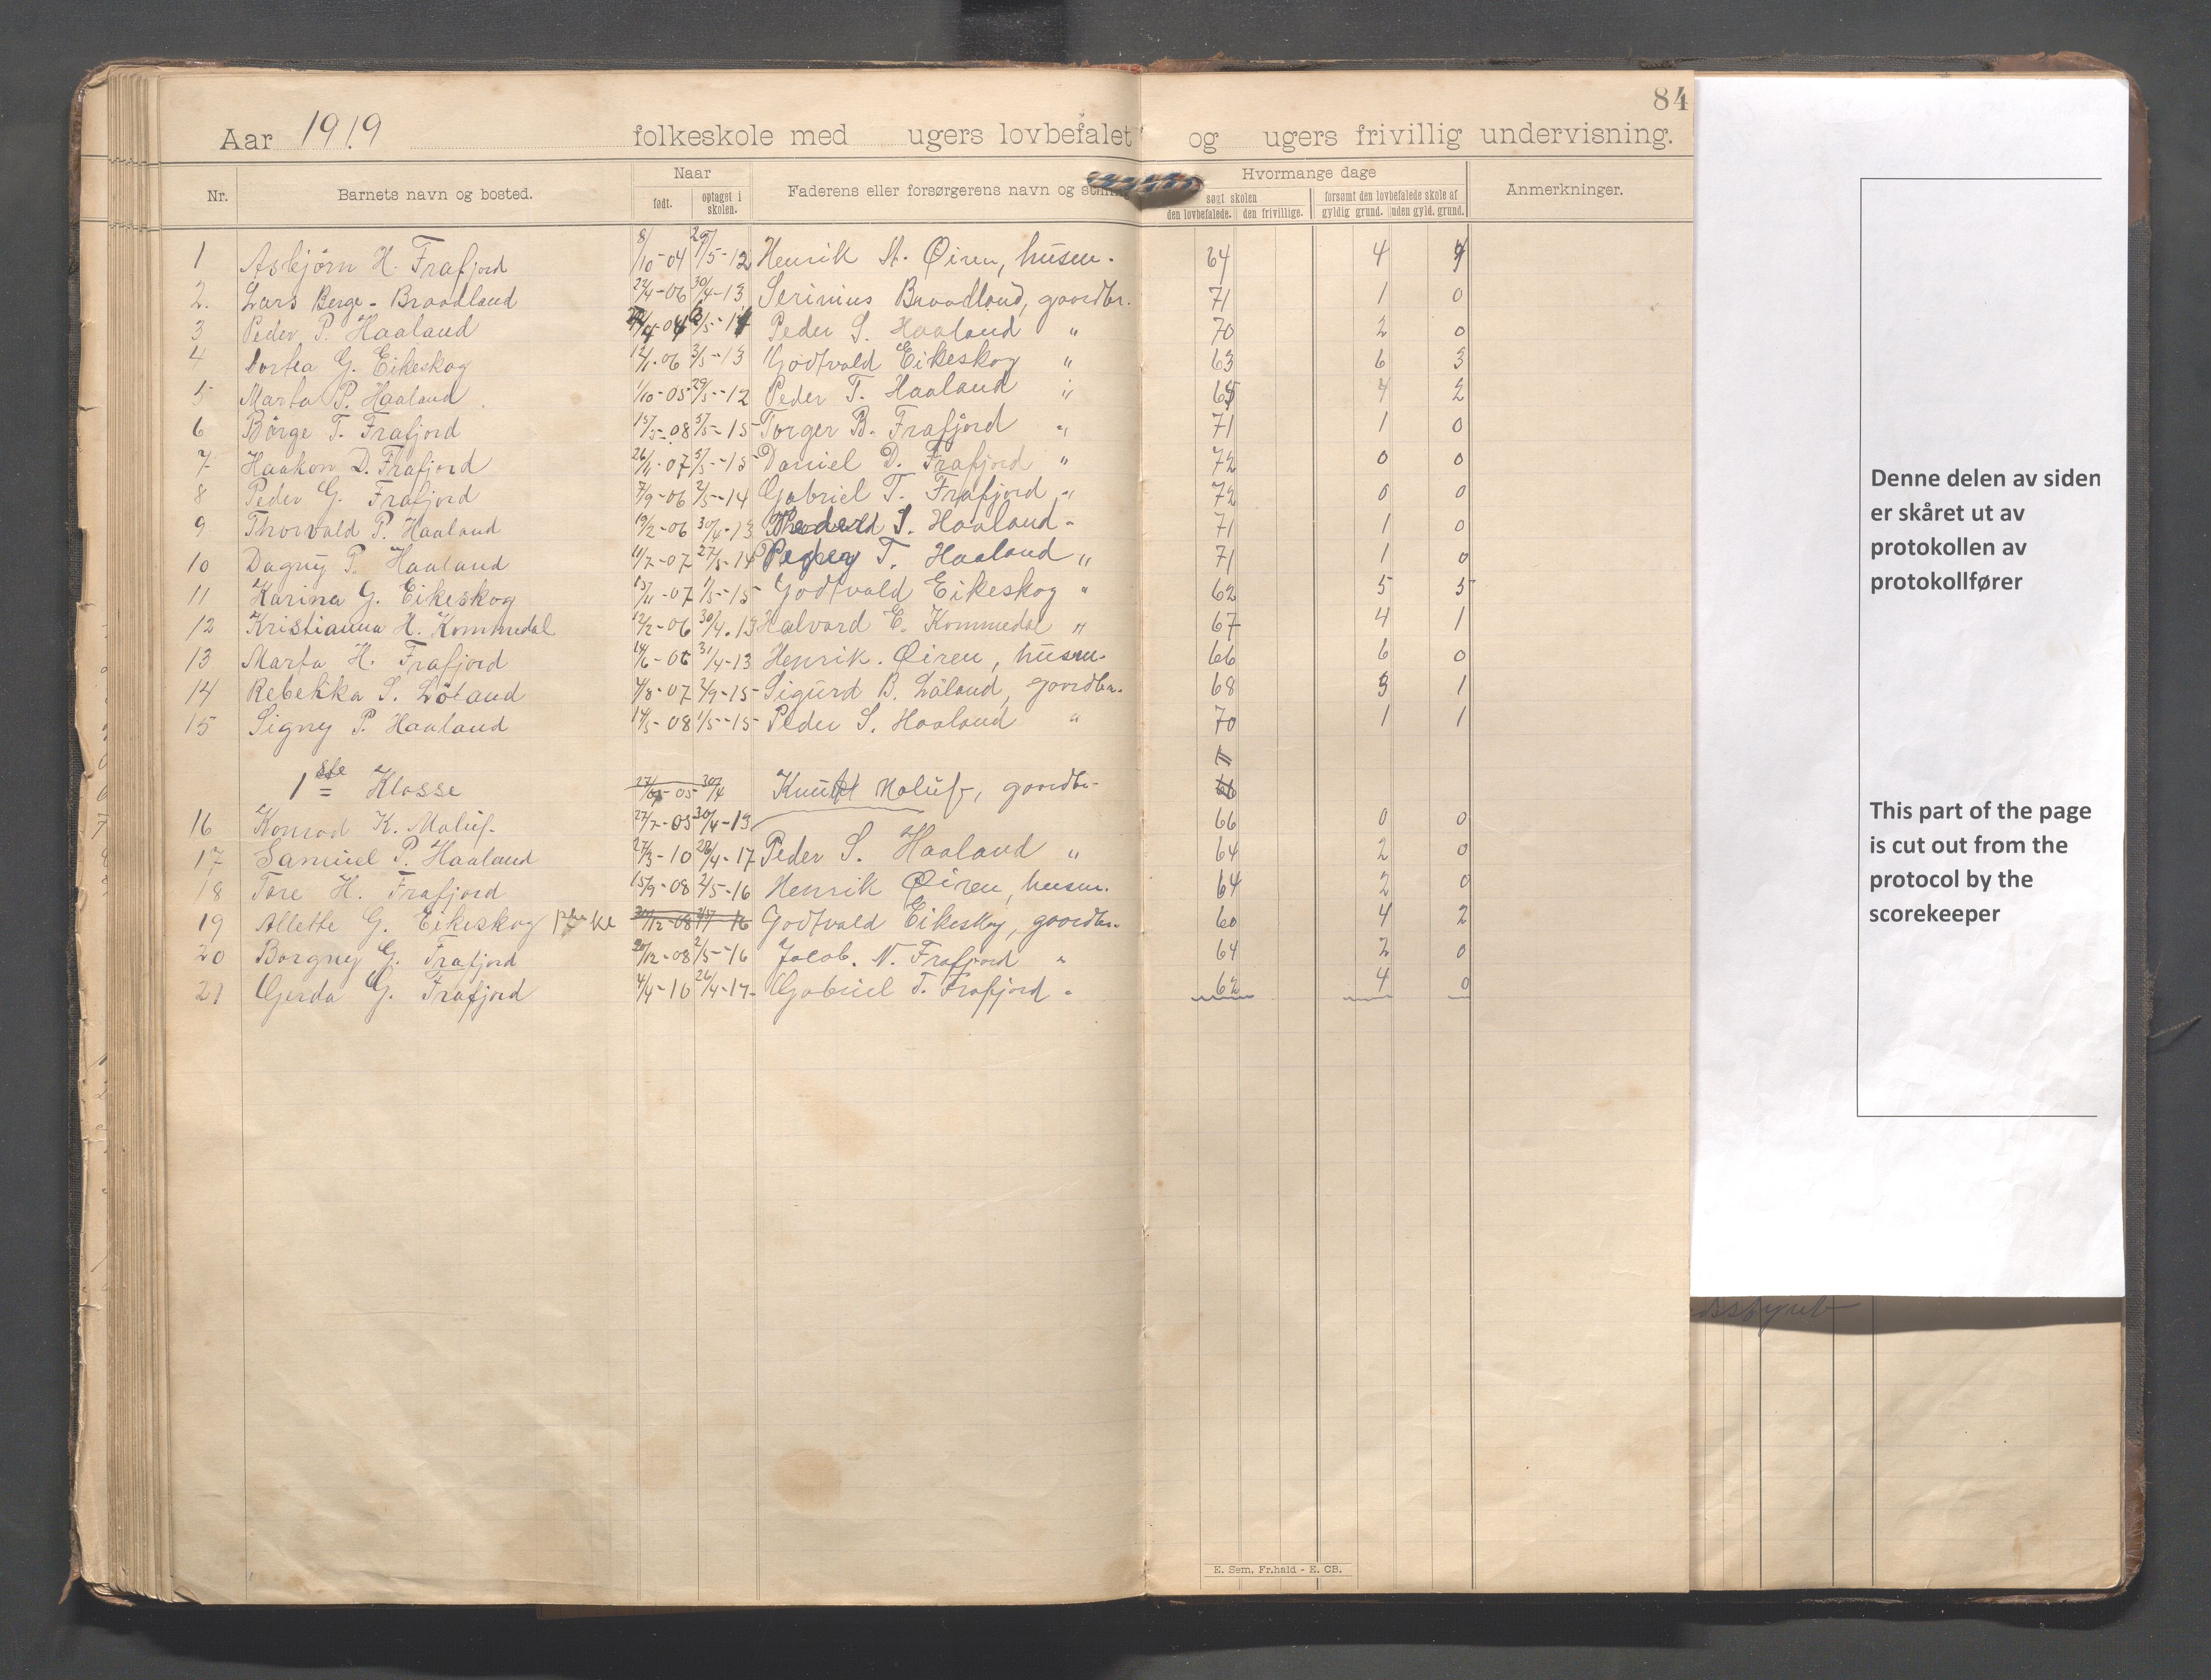 84
Aar 1919 folkeskole med ugers lovbefalet og ugers frivillig undervisning.
Nr. Barnets navn og bosted. Naar født. optaget i skolen. Faderens eller forsørgerens navn og stilling Hvormange dage søgt skolen den lovbefalede. den frivillige. forsømt den lovbefalede skole af gyldig grund. uden gyld. grund. Anmerkninger.
1 Asbjörn H. Frafjord 8/10-04 29/5-12 Henrik St. Øiren, husm. 64 4
2. Lars Berge-Braadland 22/4-06 30/4-13 Serinius Braadland, gaardbr. 71 1 0
3 Peder P. Haaland Peder S. Haaland " 70 2 0
4 Dortea G. Eikeskog 12/1-06 3/5-13 Godtvald Eikeskog " 63 6 3
5 Marta P. Haaland 1/10-05 29/5-12 Peder T. Haaland " 65 4 2
6 Börge T. Frafjord 15/5-08 5/5-15 Torger B. Frafjord " 71 1 0
7 Haakon D. Frafjord 26/11-07 5/5-15 Daniel D. Frafjord " 72 0 0
8 Peder G. Frafjord 7/9-06 2/5-14 Gabriel T. Frafjord " 72 0 0
9 Thorvald P. Haaland 19/2-06 30/4-13 Peder S. Haaland - 71 1 0
10 Dagny P. Haaland 11/7-07 27/5-14 Peder T. Haaland " 71 1 0
11 Karina G. Eikeskog 15/11-07 1/5-15 Godtvald Eikeskog " 62 5 5
12 Kristianna H. Kommedal 12/2-06 30/4-13 Halvard E. Kommedal " 67 4 1
13 Marta H. Frafjord 14/6-06 31/4-13 Henrik. Øiren, husm. 66 6 0
14 Rebekka S. Löland 4/8-07 2/9-15 Sigurd B. Löland, gaardbr. 68 3 1
15 Signy P. Haaland 14/5-08 1/5-15 Peder S. Haaland " 70 1 1
1ste Klasse Knut Maluf, gaardbr-
16 Konrad K. Maluf. 27/7-05 30/4-13 66 0 0
17 Samuel P. Haaland 27/3-10 28/4-17 Peder S. Haaland " 64 2 0
18 Tore H. Frafjord 15/9-08 2/5-16 Henrik Øiren, husm. 64 2 0
19 Allette G. Eikeskog Godtvald Eikeskog, gaardbr. 60 4 2
20 Borgny G. Frafjord 20/12-08 2/5-16 Jacob. N. Frafjord " 64 2 0
21 Gerda G. Frafjord 4/4-10 26/4-17 Gabriel T. Frafjord - 62 4 0
E. Sem, Fr.hald - E. CB.
Denne delen av siden
er skåret ut av
protokollen av
protokollfører
This part of the page
is cut out from the
protocol by the
scorekeeper